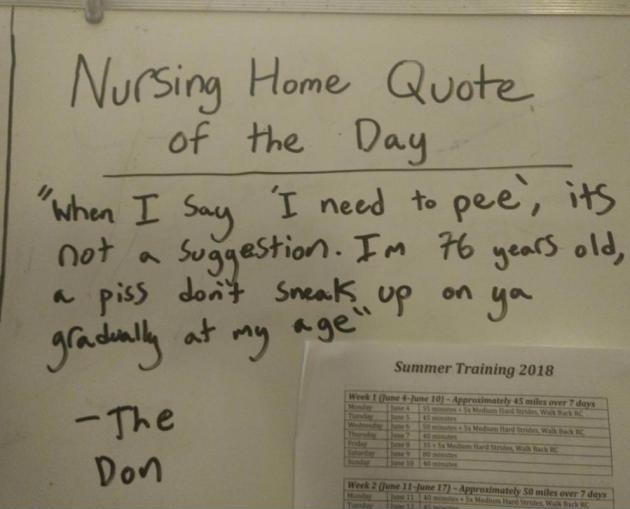 Nursing Home Quote
of the Day
"When I say 'I need to pee', its
not a suggestion. I'm 76 years old,
a piss don't sneak up on ya
gradually at my age"
-The
Don
Summer Training 2018
Week 1 (June 4-June 10) - Approximately 45 miles over 7 days
Monday June 4 35 minutes + 5x Medium Hard Strides, Walk Back RC
Tuesday June 5 45 minutes
Wednesday June 6 50 minutes + 5x Medium Hard Strides, Walk Back RC
Thursday June 7 40 minutes
Friday June 8 35 + 5x Medium Hard Strides, Walk Back RC
Saturday June 9 80 minutes
Sunday June 10 40 minutes
Week 2 (June 11-June 17) - Approximately 50 miles over 7 days
Monday June 11 40 minutes + 5x Medium Hard Strides, Walk Back RC
Tuesday June 12